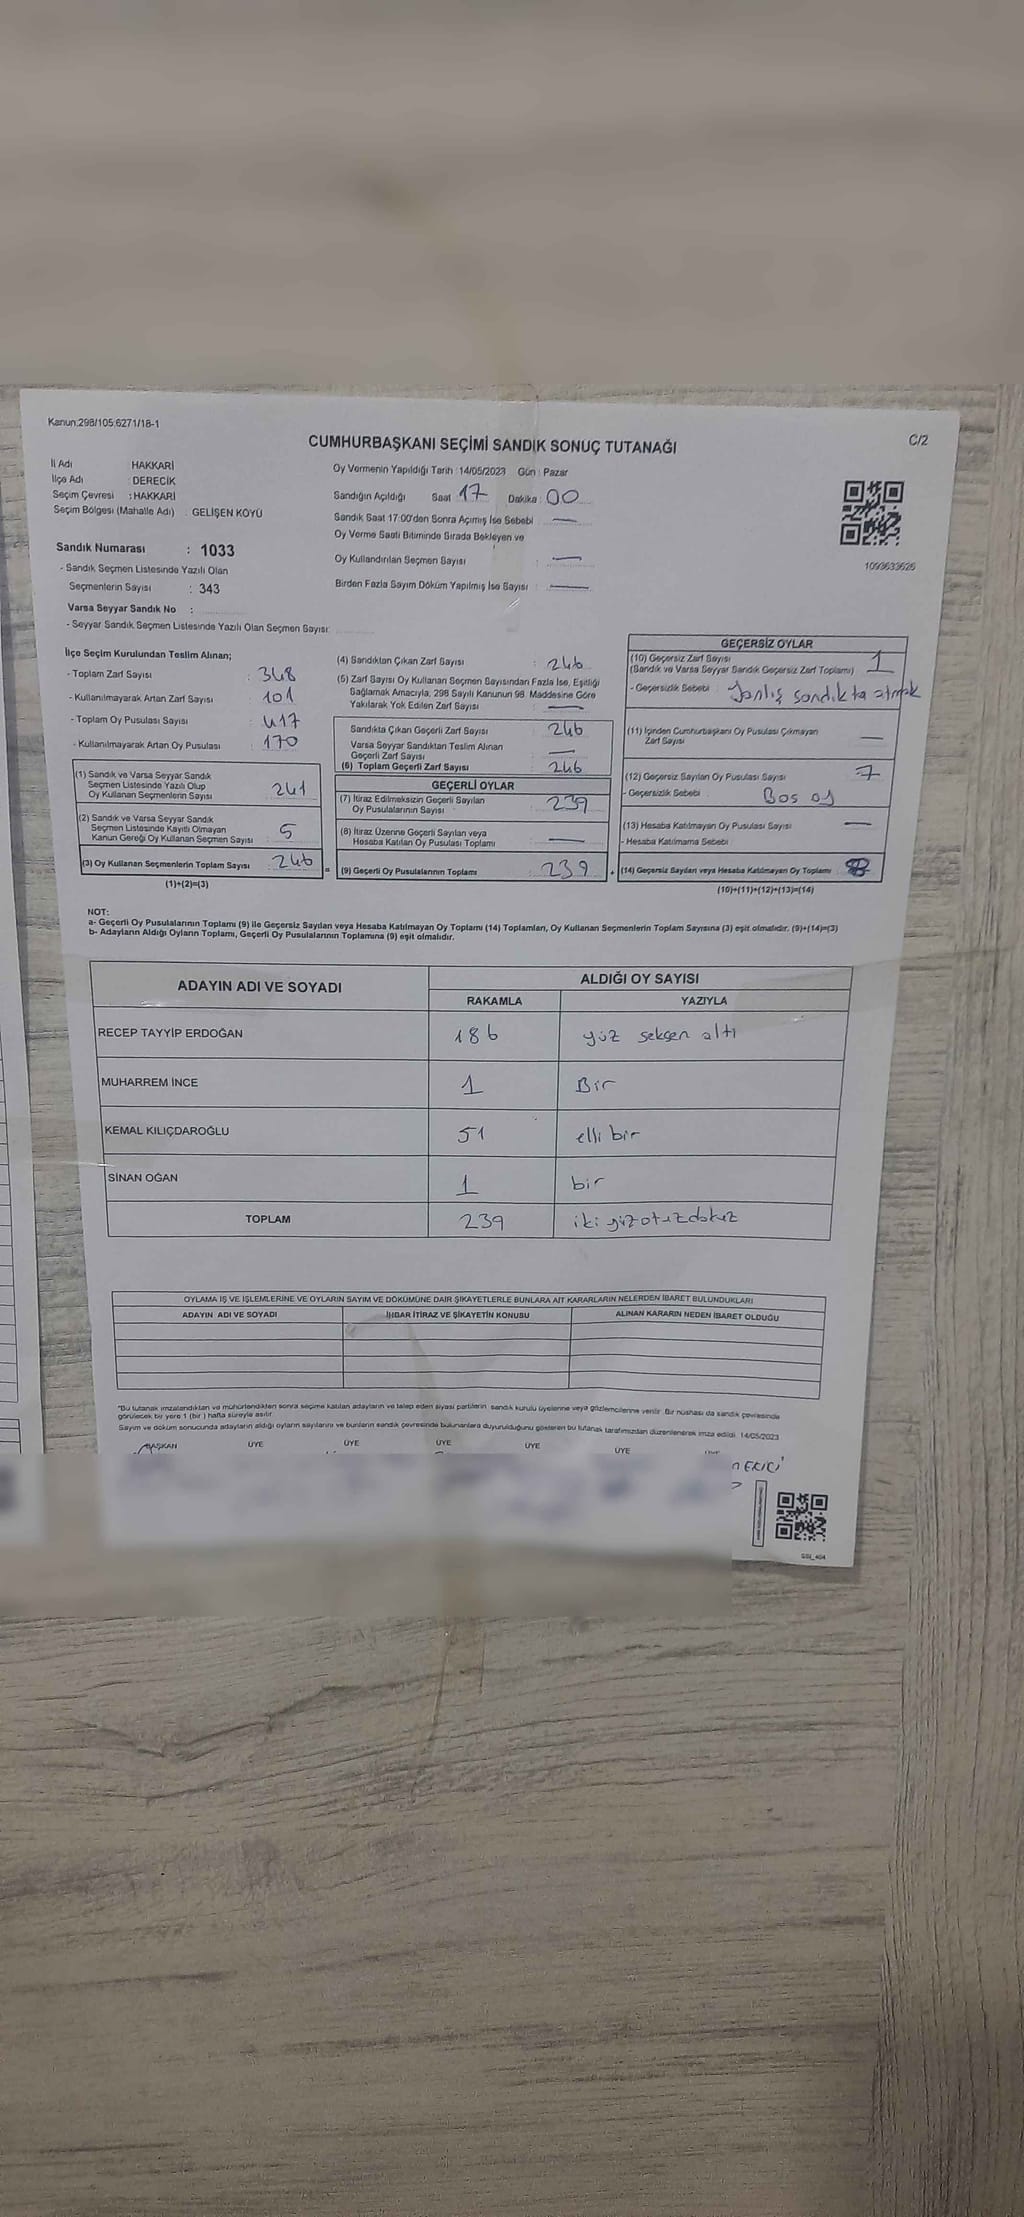 Kanun:298/105:6271/18-1
C/2
CUMHURBAŞKANI SEÇİMİ SANDIK SONUÇ TUTANAĞI
İl Adı HAKKARİ
İlçe Adı DERECİK
Seçim Çevresi : HAKKARİ
Seçim Bölgesi (Mahalle Adı) : GELİŞEN KÖYÜ
Sandık Numarası : 1033
- Sandık Seçmen Listesinde Yazılı Olan
Seçmenlerin Sayısı : 343
Varsa Seyyar Sandık No :
- Seyyar Sandık Seçmen Listesinde Yazılı Olan Seçmen Sayısı:
Oy Vermenin Yapıldığı Tarih : 14/05/2023 Gün : Pazar
Sandığın Açıldığı Saat 17 Dakika : 00
Sandık Saat 17:00'den Sonra Açılmış İse Sebebi —
Oy Verme Saati Bitiminde Sırada Bekleyen ve
Oy Kullandırılan Seçmen Sayısı : —
Birden Fazla Sayım Döküm Yapılmış İse Sayısı : —
1093633626
İlçe Seçim Kurulundan Teslim Alınan;
- Toplam Zarf Sayısı : 348
- Kullanılmayarak Artan Zarf Sayısı : 101
- Toplam Oy Pusulası Sayısı : 417
- Kullanılmayarak Artan Oy Pusulası : 170
(1) Sandık ve Varsa Seyyar Sandık
Seçmen Listesinde Yazılı Olup
Oy Kullanan Seçmenlerin Sayısı : 241
(2) Sandık ve Varsa Seyyar Sandık
Seçmen Listesinde Kayıtlı Olmayan
Kanun Gereği Oy Kullanan Seçmen Sayısı : 5
(3) Oy Kullanan Seçmenlerin Toplam Sayısı : 246
(1)+(2)=(3)
(4) Sandıktan Çıkan Zarf Sayısı : 246
(5) Zarf Sayısı Oy Kullanan Seçmen Sayısından Fazla İse, Eşitliği
Sağlamak Amacıyla, 298 Sayılı Kanunun 98. Maddesine Göre
Yakılarak Yok Edilen Zarf Sayısı : —
Sandıkta Çıkan Geçerli Zarf Sayısı : 246
Varsa Seyyar Sandıktan Teslim Alınan
Geçerli Zarf Sayısı : —
(6) Toplam Geçerli Zarf Sayısı : 246
GEÇERLİ OYLAR
(7) İtiraz Edilmeksizin Geçerli Sayılan
Oy Pusulalarının Sayısı : 239
(8) İtiraz Üzerine Geçerli Sayılan veya
Hesaba Katılan Oy Pusulası Toplamı : —
(9) Geçerli Oy Pusulalarının Toplamı : 239
GEÇERSİZ OYLAR
(10) Geçersiz Zarf Sayısı
(Sandık ve Varsa Seyyar Sandık Geçersiz Zarf Toplamı) : 1
- Geçersizlik Sebebi : Yanlış sandıkta atmak
(11) İçinden Cumhurbaşkanı Oy Pusulası Çıkmayan
Zarf Sayısı : —
(12) Geçersiz Sayılan Oy Pusulası Sayısı : 7
- Geçersizlik Sebebi : Boş oy
(13) Hesaba Katılmayan Oy Pusulası Sayısı : —
- Hesaba Katılmama Sebebi :
(14) Geçersiz Sayılan veya Hesaba Katılmayan Oy Toplamı :
(10)+(11)+(12)+(13)=(14)
NOT:
a- Geçerli Oy Pusulalarının Toplamı (9) ile Geçersiz Sayılan veya Hesaba Katılmayan Oy Toplamı (14) Toplamları, Oy Kullanan Seçmenlerin Toplam Sayısına (3) eşit olmalıdır. (9)+(14)=(3)
b- Adayların Aldığı Oyların Toplamı, Geçerli Oy Pusulalarının Toplamına (9) eşit olmalıdır.
ADAYIN ADI VE SOYADI ALDIĞI OY SAYISI
RAKAMLA YAZIYLA
RECEP TAYYİP ERDOĞAN 186 yüz seksen altı
MUHARREM İNCE 1 Bir
KEMAL KILIÇDAROĞLU 51 elli bir
SİNAN OĞAN 1 bir
TOPLAM 239 iki yüz otuz dokuz
OYLAMA İŞ VE İŞLEMLERİNE VE OYLARIN SAYIM VE DÖKÜMÜNE DAİR ŞİKAYETLERLE BUNLARA AİT KARARLARIN NELERDEN İBARET BULUNDUKLARI
ADAYIN ADI VE SOYADI İHBAR İTİRAZ VE ŞİKAYETİN KONUSU ALINAN KARARIN NEDEN İBARET OLDUĞU
"Bu tutanak imzalandıktan ve mühürlendikten sonra seçime katılan adayların ve talep eden siyasi partilerin sandık kurulu üyelerine veya gözlemcilerine verilir. Bir nüshası da sandık çevresinde
görülecek bir yere 1 (bir) hafta süreyle asılır.
Sayım ve döküm sonucunda adayların aldığı oyların sayılarını ve bunların sandık çevresinde bulunanlara duyurulduğunu gösteren bu tutanak tarafımızdan düzenlenerek imza edildi. 14/05/2023
BAŞKAN ÜYE ÜYE ÜYE ÜYE ÜYE
EKİCİ